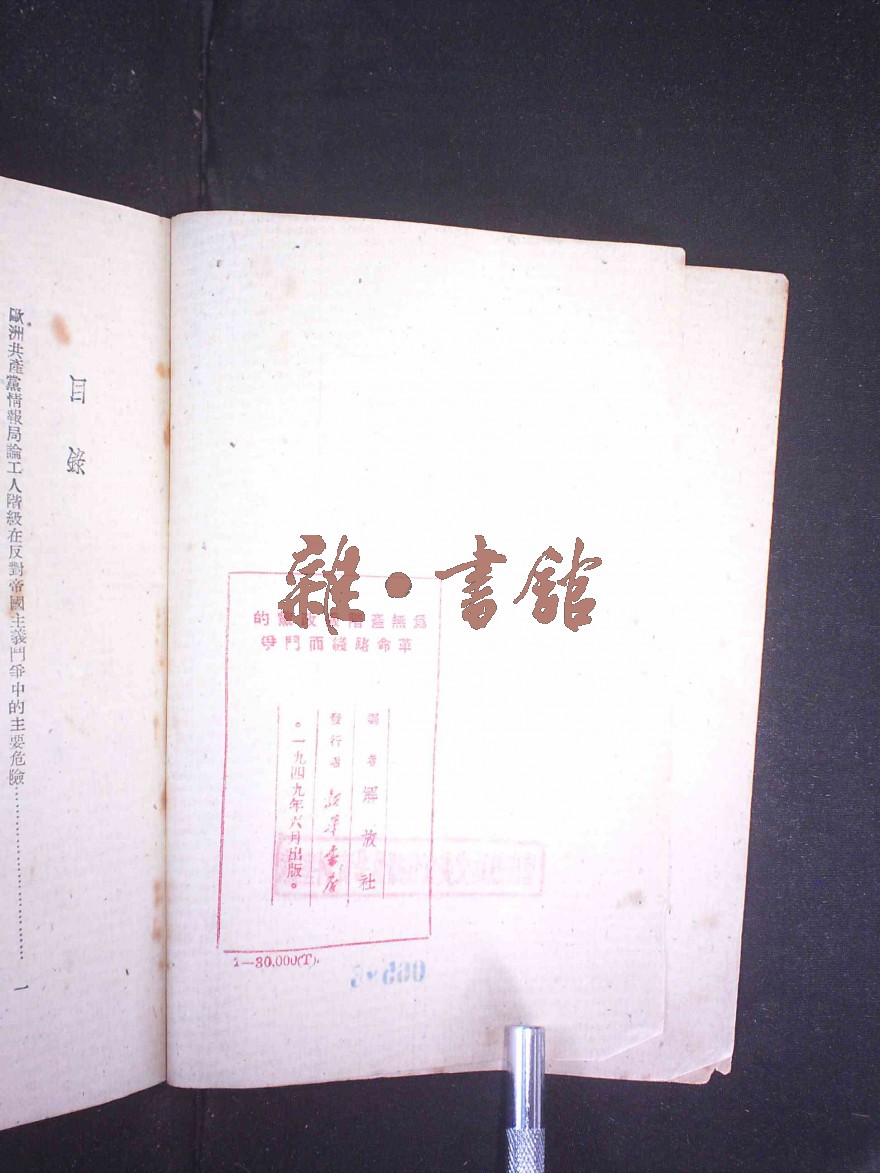 雜·書館
為無產階級政黨的
革命路綫而鬥爭
編者 解放社
發行者 新華書店
。一九四九年六月出版。
1—30,000(T).
目錄
歐洲共產黨情報局論工人階級在反對帝國主義鬥爭中的主要危險……………………一